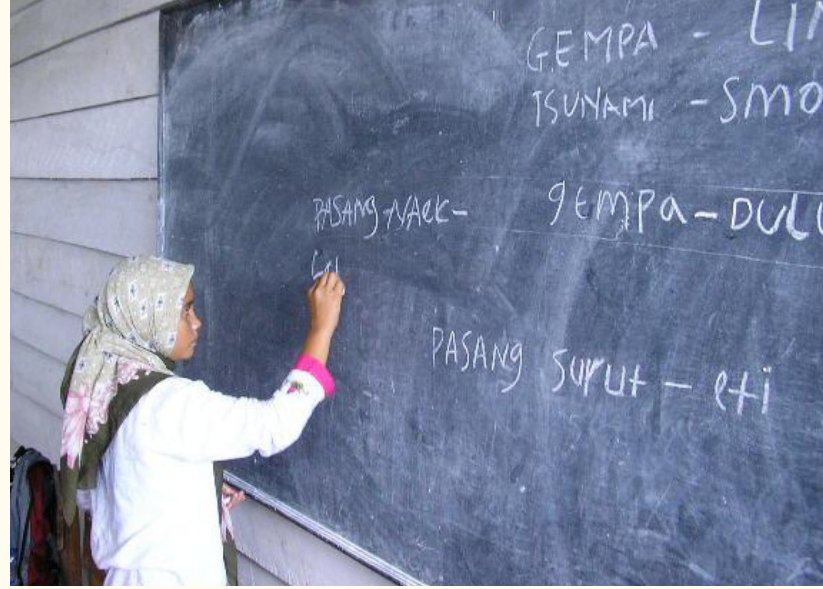 GEMPA - LIN
TSUNAMI - SMO
PASANG NAEK - gEMPa - DULU
PASANg SuruT - eti